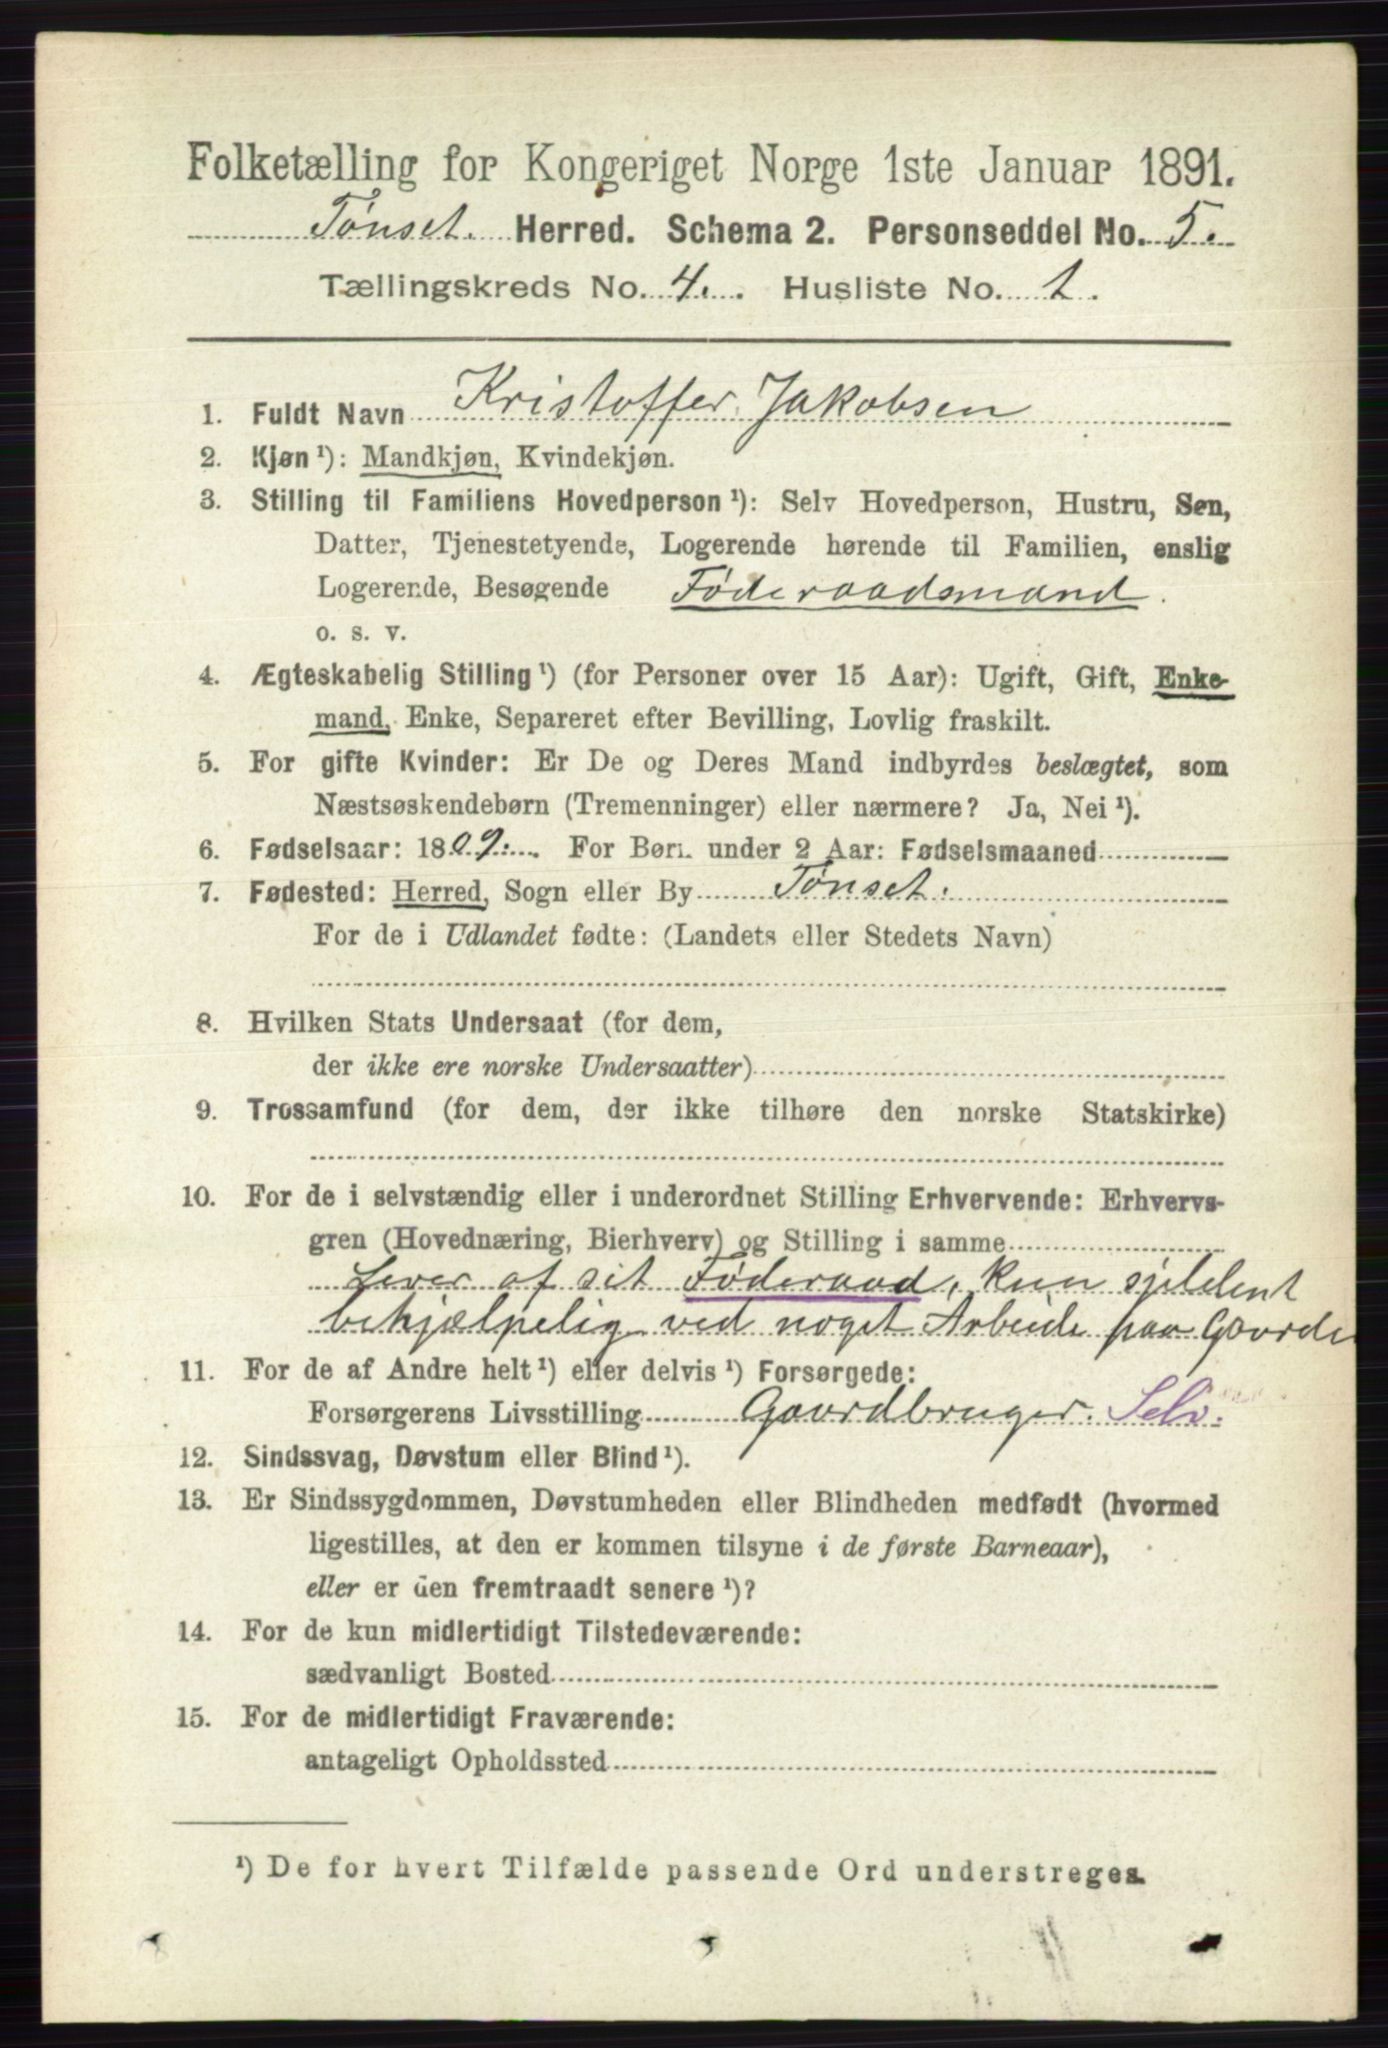 Folketælling for Kongeriget Norge 1ste Januar 1891.
Tønset. Herred. Schema 2. Personseddel No. 5.
Tællingskreds No. 4. Husliste No. 1.
1. Fuldt Navn Kristoffer Jakobsen
2. Kjøn ¹): Mandkjøn, Kvindekjøn.
3. Stilling til Familiens Hovedperson ¹): Selv Hovedperson, Hustru, Søn,
Datter, Tjenestetyende, Logerende hørende til Familien, enslig
Logerende, Besøgende Føderaadsmand.
o. s. v.
4. Ægteskabelig Stilling ¹) (for Personer over 15 Aar): Ugift, Gift, Enke-
mand, Enke, Separeret efter Bevilling, Lovlig fraskilt.
5. For gifte Kvinder: Er De og Deres Mand indbyrdes beslægtet, som
Næstsøskendebørn (Tremenninger) eller nærmere? Ja, Nei ¹).
6. Fødselsaar: 1809. For Børn under 2 Aar: Fødselsmaaned
7. Fødested: Herred, Sogn eller By Tønset.
For de i Udlandet fødte: (Landets eller Stedets Navn)
8. Hvilken Stats Undersaat (for dem,
der ikke ere norske Undersaatter)
9. Trossamfund (for dem, der ikke tilhøre den norske Statskirke)
10. For de i selvstændig eller i underordnet Stilling Erhvervende: Erhvervs-
gren (Hovednæring, Bierhverv) og Stilling i samme
Lever af sit Føderaad, kun sjeldent
behjælpelig ved noget Arbeide paa Gaarde
11. For de af Andre helt ¹) eller delvis ¹) Forsørgede:
Forsørgerens Livsstilling Gaardbruger. Selv.
12. Sindssvag, Døvstum eller Blind ¹).
13. Er Sindssygdommen, Døvstumheden eller Blindheden medfødt (hvormed
ligestilles, at den er kommen tilsyne i de første Barneaar),
eller er den fremtraadt senere ¹)?
14. For de kun midlertidigt Tilstedeværende:
sædvanligt Bosted
15. For de midlertidigt Fraværende:
antageligt Opholdssted
¹) De for hvert Tilfælde passende Ord understreges.